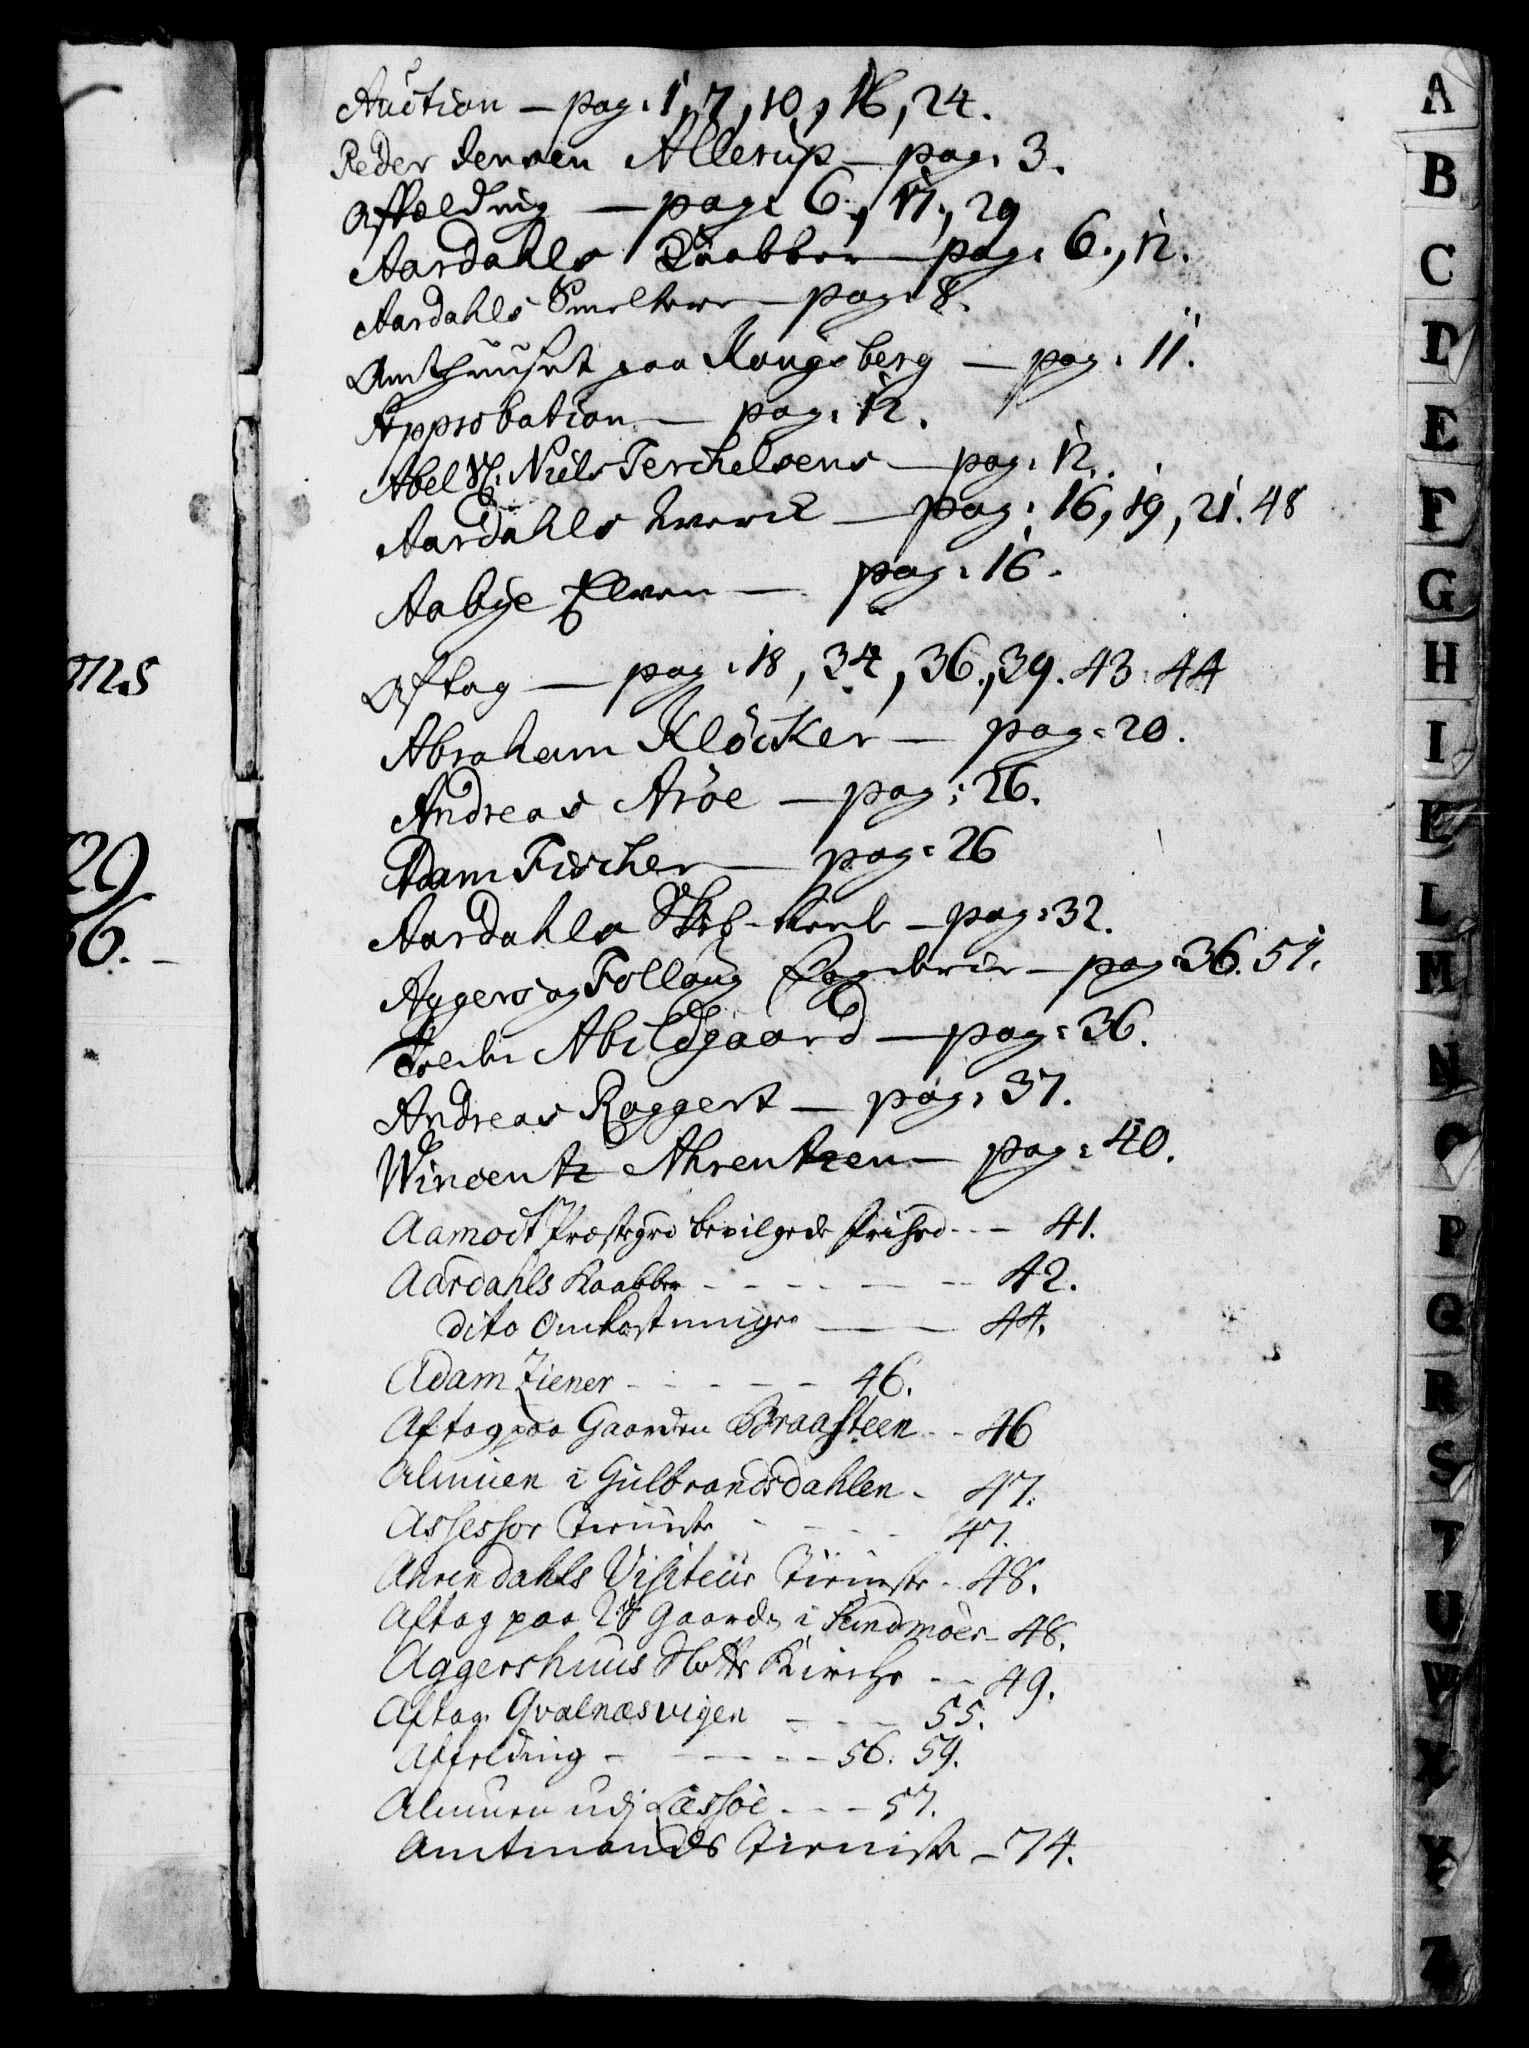 Auction — pag: 1, 7, 10, 16, 24.
Peder Jensen Allerup — pag: 3.
Affælding — pag: 6., 17., 29
Aardahls Kaabber — pag: 6., 12.
Aardahls Smeltere — pag: 8.
Amthuuset paa Kongsberg — pag: 11.
Approbation — pag: 12.
Abel Sl. Niels Terchelsens — pag: 12.
Aardahls Werck — pag: 16, 19, 21. 48
Aabye Elven — pag: 16.
Aftag — pag: 18, 34, 36., 39. 43. 44
Abraham Klöcker — pag: 20.
Andreas Aröe — pag: 26.
Adam Fischer — pag: 26
Aardahls — pag: 32.
Aggers og Folloug Fogderier — pag: 36. 51.
Abildgaard — pag: 36.
Andreas Roggert — pag: 37.
Wincentz Ahrentzen — pag: 40.
Aamodt Præstegrd bevilgede frihed - - - 41.
Aardahls Kaabber - - - - - - 42.
dito Omkostninger — — 44.
Adam Ziener - - - - - 46.
Aftag paa Gaarden Braasteen - - 46
Almuen i Gulbrandsdahlen - 47.
Assessor Tieniste - - - - 47.
Ahrendahls Visiteur Tieniste - 48.
Aftag paa Gaarde i Sundmöer - 48.
Aggershuus Slotts Kirche - - 49.
Aftag Qvalnæsvigen - - - 55.
Affelding - - - - - 56. 59.
Almuen udj Læssöe - - - 57.
Amtmands Tieniste - 74.
ms
29
56. -
A
B
C
D
E
F
G
H
I
K
L
M
N
O
P
Q
R
S
T
U
W
X
Y
Z